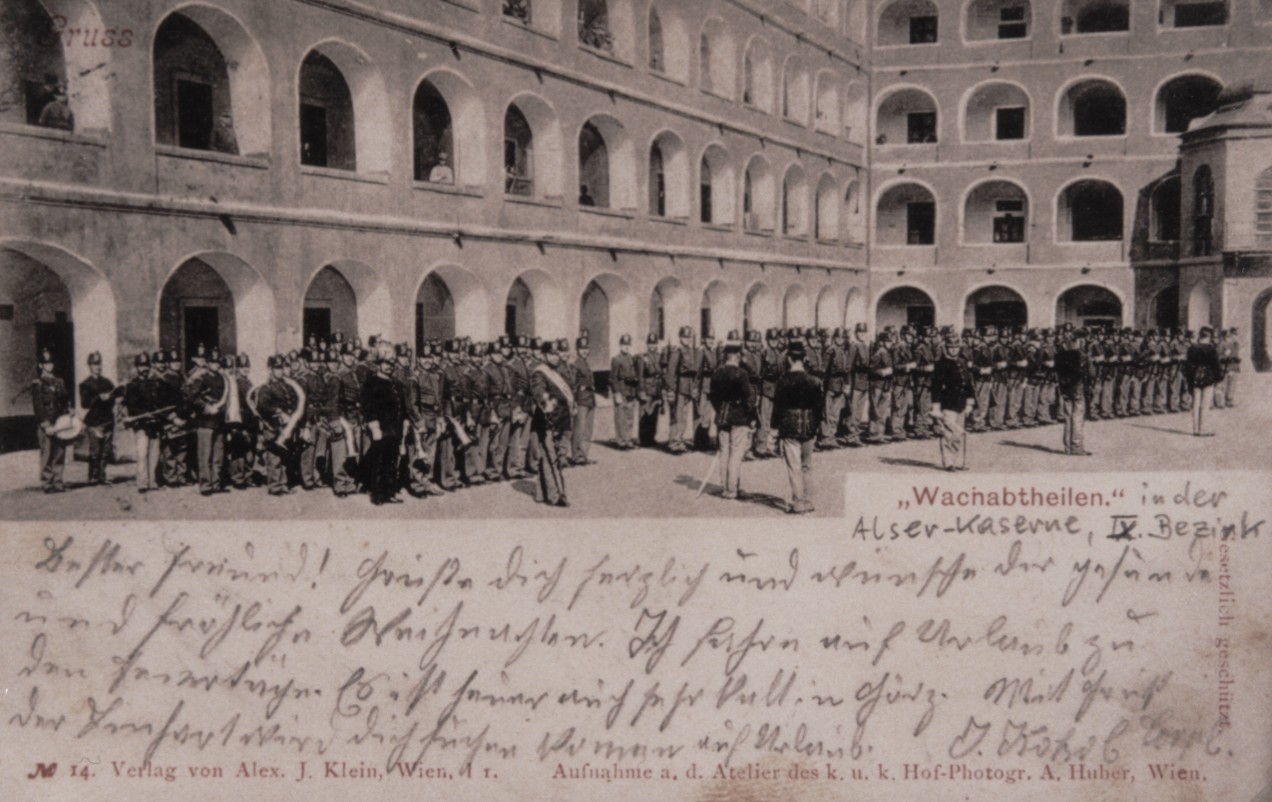 Gruss
„Wachabtheilen.“ in der
Alser-Kaserne, IX. Bezirk
Bester Freund! Grüße dich herzlich und wünsche dir gesunde
und fröhliche Weihnachten. Ich fahre auf Urlaub zu
den Feiertäge. Es ist heuer auch sehr kalt in Görz. Mit Gruß
der wird dich kommen auf Urlaub. J. Corpl.
gesetzlich geschützt.
№ 14. Verlag von Alex. J. Klein, Wien, I 1. Aufnahme a. d. Atelier des k. u. k. Hof-Photogr. A. Huber, Wien.